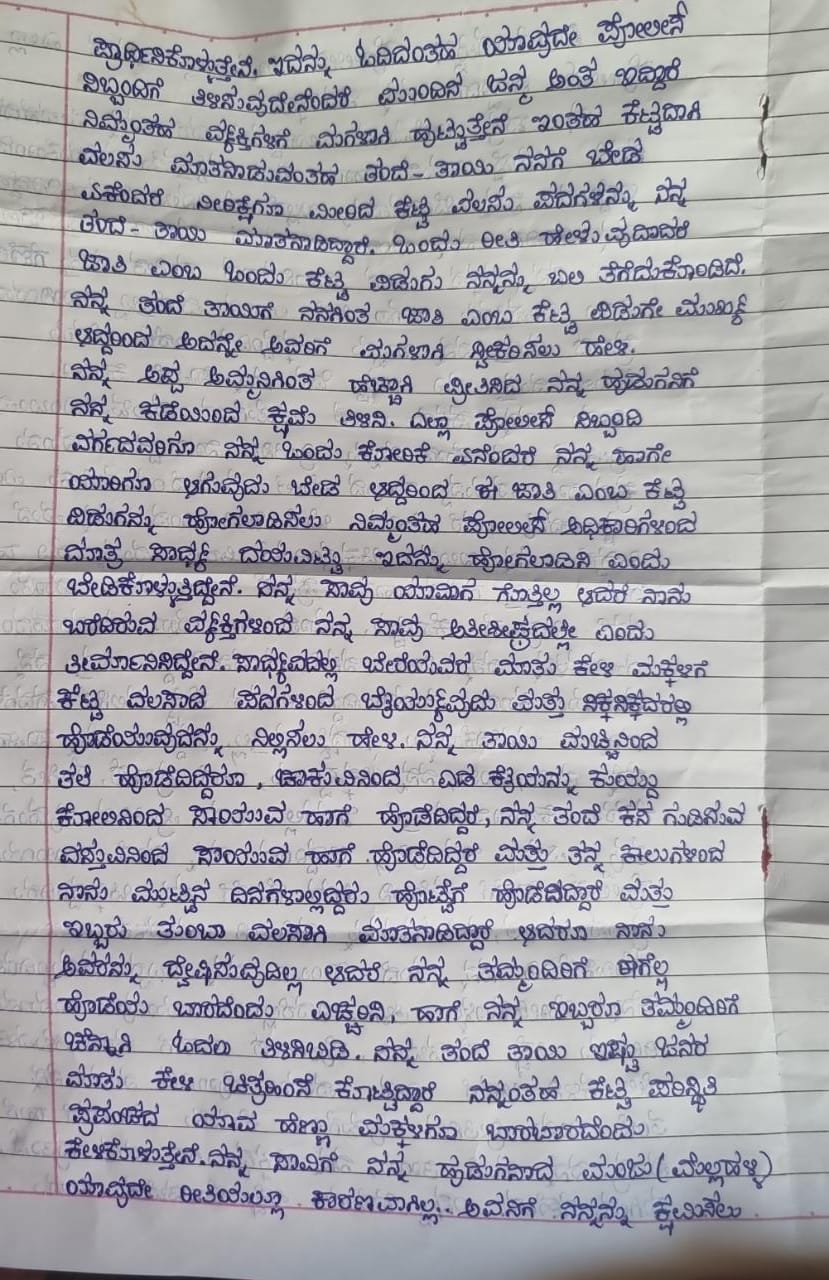 ಪ್ರಾರ್ಥಿಸಿಕೊಳ್ಳುತ್ತೇನೆ. ಇದನ್ನು ಓದಿದಂತಹ ಯಾವುದೇ ಪೋಲೀಸ್
ಸಿಬ್ಬಂದಿಗೆ ತಿಳಿಸುವುದೇನೆಂದರೆ ಮುಂದಿನ ಜನ್ಮ ಅಂತ ಇದ್ದಾರೆ
ನಿಮ್ಮಂತಹ ವ್ಯಕ್ತಿಗಳಿಗೆ ಮಗಳಾಗಿ ಹುಟ್ಟುತ್ತೇನೆ ಇಂತಹ ಕೆಟ್ಟದಾಗಿ
ವಲಸು ಮಾತನಾಡುವಂತಹ ತಂದೆ - ತಾಯಿ ನನಗೆ ಬೇಡ
ಏಕೆಂದರೆ ನಿರೀಕ್ಷೆಗೂ ಮೀರಿದ ಕೆಟ್ಟ ವಲಸು ಪದಗಳನ್ನು ನನ್ನ
ತಂದೆ - ತಾಯಿ ಮಾತನಾಡಿದ್ದಾರೆ. ಒಂದು ರೀತಿ ಹೇಳುವುದಾದರೆ
ಜಾತಿ ಎಂಬ ಒಂದು ಕೆಟ್ಟ ಪಿಡುಗು ನನ್ನನ್ನು ಬಲಿ ತೆಗೆದುಕೊಂಡಿದೆ.
ನನ್ನ ತಂದೆ ತಾಯಿಗೆ ನನಗಿಂತ ಜಾತಿ ಎಂಬ ಕೆಟ್ಟ ಪಿಡುಗೇ ಮುಖ್ಯ
ಆದ್ದರಿಂದ ಅದನ್ನೇ ಅವರಿಗೆ ಮಗಳಾಗಿ ಸ್ವೀಕರಿಸಲು ಹೇಳಿ.
ನನ್ನ ಅಪ್ಪ ಅಮ್ಮನಿಗಿಂತ ಹೆಚ್ಚಾಗಿ ಪ್ರೀತಿಸಿದ ನನ್ನ ಹುಡುಗನಿಗೆ
ನನ್ನ ಕಡೆಯಿಂದ ಕ್ಷಮೆ ತಿಳಿಸಿ. ಎಲ್ಲಾ ಪೋಲೀಸ್ ಸಿಬ್ಬಂದಿ
ವರ್ಗದವರಿಗೂ ನನ್ನ ಒಂದು ಕೋರಿಕೆ ಏನೆಂದರೆ ನನ್ನ ಹಾಗೇ
ಯಾರಿಗೂ ಆಗುವುದು ಬೇಡ ಆದ್ದರಿಂದ ಈ ಜಾತಿ ಎಂಬ ಕೆಟ್ಟ
ಪಿಡುಗನ್ನು ಹೋಗಲಾಡಿಸಲು ನಿಮ್ಮಂತಹ ಪೋಲೀಸ್ ಅಧಿಕಾರಿಗಳಿಂದ
ಮಾತ್ರ ಸಾಧ್ಯ ದಯವಿಟ್ಟು ಇದನ್ನು ಹೋಗಲಾಡಿಸಿ ಎಂದು
ಬೇಡಿಕೊಳ್ಳುತ್ತಿದ್ದೇನೆ. ನನ್ನ ಸಾವು ಯಾವಾಗ ಗೊತ್ತಿಲ್ಲ ಆದರೆ ನಾನು
ಬರೆದಿರುವ ವ್ಯಕ್ತಿಗಳಿಂದ ನನ್ನ ಸಾವು ಅತೀಶೀಘ್ರದಲ್ಲೇ ಎಂದು
ತೀರ್ಮಾನಿಸಿದ್ದೇನೆ. ಸಾಧ್ಯವಾದಲ್ಲಿ ಬೇರೆಯವರ ಮಾತು ಕೇಳಿ ಮಕ್ಕಳಿಗೆ
ಕೆಟ್ಟ ವಲಸಾದ ಪದಗಳಿಂದ ಬೈಯ್ಯುವುದು ಮತ್ತು ಸಿಕ್ಕಸಿಕ್ಕಿದರಲ್ಲಿ
ಹೊಡೆಯುವುದನ್ನು ನಿಲ್ಲಿಸಲು ಹೇಳಿ. ನನ್ನ ತಾಯಿ ಮಚ್ಚಿನಿಂದ
ತಲೆ ಹೊಡೆದಿದ್ದರೂ, ಚಾಕುವಿನಿಂದ ಎಡ ಕೈಯನ್ನು ಕುಯ್ದು
ಕೋಲಿನಿಂದ ಸಾಯುವ ಹಾಗೆ ಹೊಡೆದಿದ್ದರೆ, ನನ್ನ ತಂದೆ ಕಸ ಗುಡಿಸುವ
ವಸ್ತುವಿನಿಂದ ಸಾಯುವ ಹಾಗೆ ಹೊಡೆದಿದ್ದರೆ ಮತ್ತು ತನ್ನ ಕಾಲುಗಳಿಂದ
ನಾನು ಮುಟ್ಟಿನ ದಿನಗಳಲ್ಲಿದ್ದರು ಹೊಟ್ಟೆಗೆ ಹೊಡೆದಿದ್ದಾರೆ ಮತ್ತು
ಇಬ್ಬರು ತುಂಬಾ ವಲಸಾಗಿ ಮಾತನಾಡಿದ್ದಾರೆ ಆದರೂ ನಾನು
ಅವರನ್ನು ದ್ವೇಷಿಸುವುದಿಲ್ಲ ಆದರೆ ನನ್ನ ತಮ್ಮಂದಿರಿಗೆ ಹೀಗೆಲ್ಲ
ಹೊಡೆಯ ಬಾರದೆಂದು ಎಚ್ಚರಿಸಿ. ಹಾಗೆ ನನ್ನ ಇಬ್ಬರೂ ತಮ್ಮಂದಿರಿಗೆ
ಚೆನ್ನಾಗಿ ಓದಲು ತಿಳಿಸಿಬಿಡಿ. ನನ್ನ ತಂದೆ ತಾಯಿ ಇಷ್ಟು ಜನರ
ಮಾತು ಕೇಳಿ ಚಿತ್ರಹಿಂಸೆ ಕೊಟ್ಟಿದ್ದಾರೆ ನನ್ನಂತಹ ಕೆಟ್ಟ ಪರಿಸ್ಥಿತಿ
ಪ್ರಪಂಚದ ಯಾವ ಹೆಣ್ಣು ಮಕ್ಕಳಿಗೂ ಬಾರಬಾರದೆಂದು
ಕೇಳಿಕೊಳ್ಳುತ್ತೇನೆ. ನನ್ನ ಸಾವಿಗೆ ನನ್ನ ಹುಡುಗನಾದ ಮಂಜು (ಮಲ್ಲಹಳ್ಳಿ)
ಯಾವುದೇ ರೀತಿಯಲ್ಲೂ ಕಾರಣವಾಗಿಲ್ಲ.. ಅವನಿಗೆ ನನ್ನನ್ನು ಕ್ಷಮಿಸಲು